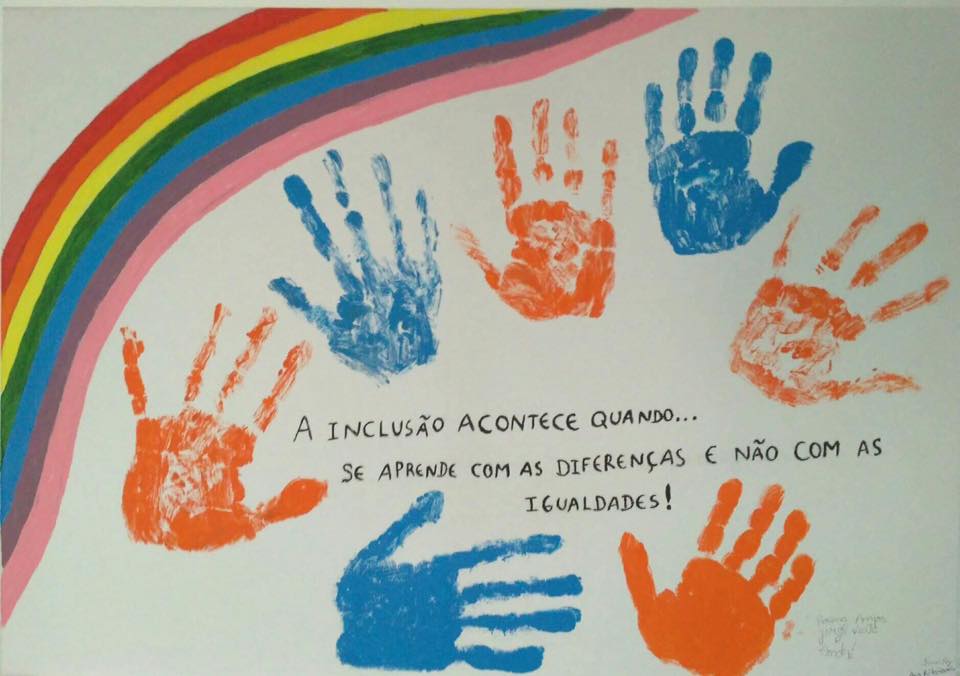 A INCLUSÃO ACONTECE QUANDO...
SE APRENDE COM AS DIFERENÇAS E NÃO COM AS
IGUALDADES!